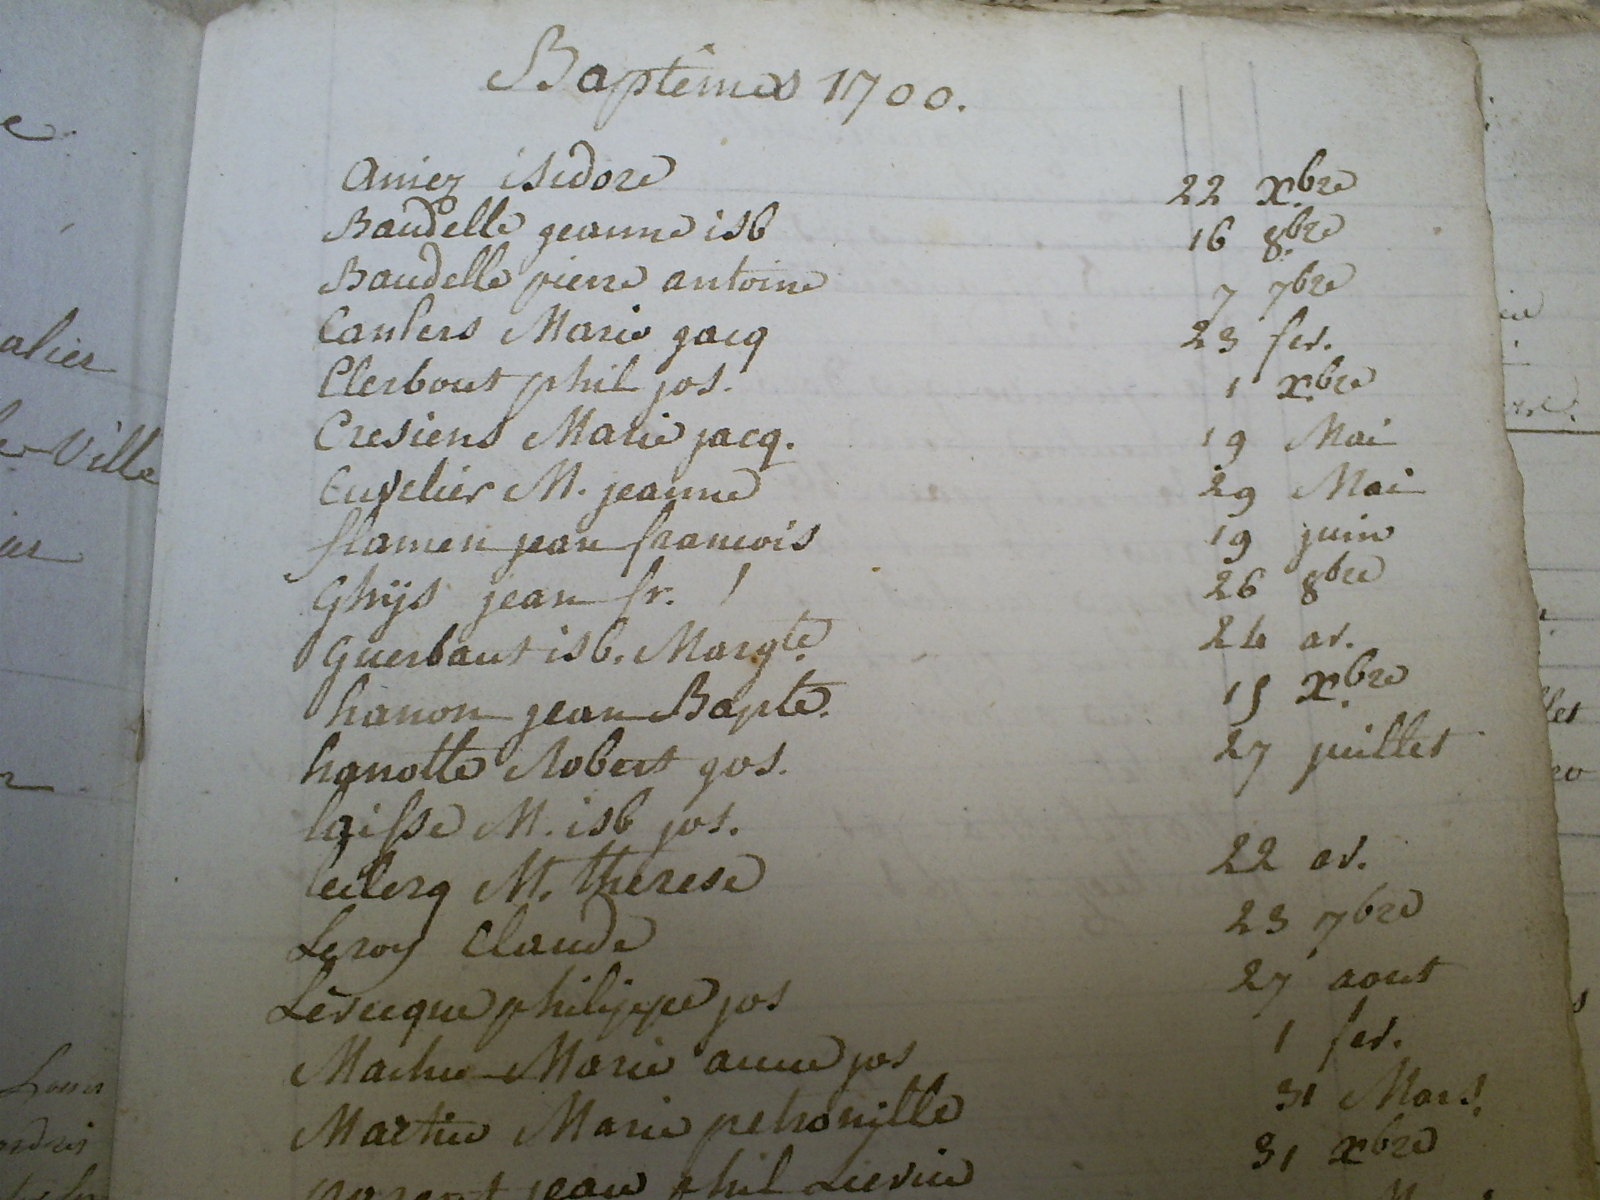 Baptêmes 1700.
Amez isidore 22 xbre
Baudelle jeanne isb 16 8bre
Baudelle pierre antoine 7 7bre
Canlers Marie jacq 23 fev.
Clerbout phil jos. 1 xbre
Cresiens Marie jacq. 19 Mai
Cuvelier M. jeanne 29 Mai
flamen jean francois 19 juin
Ghijs jean fr. ! 26 8bre
Guerbaut isb. Margte. 24 av.
hanon jean Bapte. 15 xbre
hanotte Robert jos. 27 juillet
laisse M. isb jos.
leclerq M. therese 22 av.
Leroy Claude 23 7bre
Levecque philippe jos 27 aout
Mahu Marie anne jos 1 fev.
Martin Marie petronille 31 Mars.
jean phil Lievin 31 xbre
alier
Ville